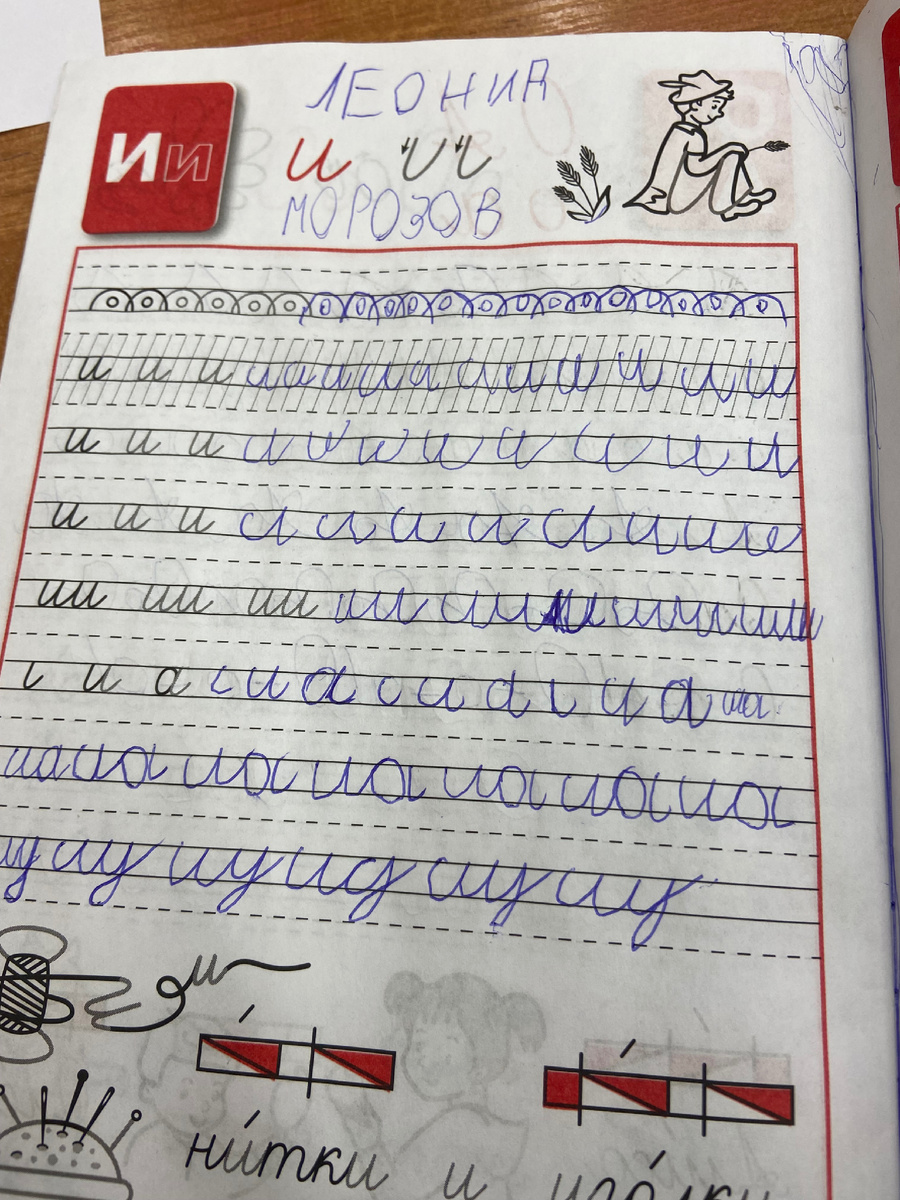 Ии
ЛЕОНИД
и
МОРОЗОВ
и и и и и и и и и и и и и и
и и и и и и и и и и и
и и и и и и и и и и и
ии ии ии ии ии ии ии ии
и а и а и а и а иа
иа иа иа иа иа иа иа
иу иу иу иу иу иу
и
ни́тки и иго́лки